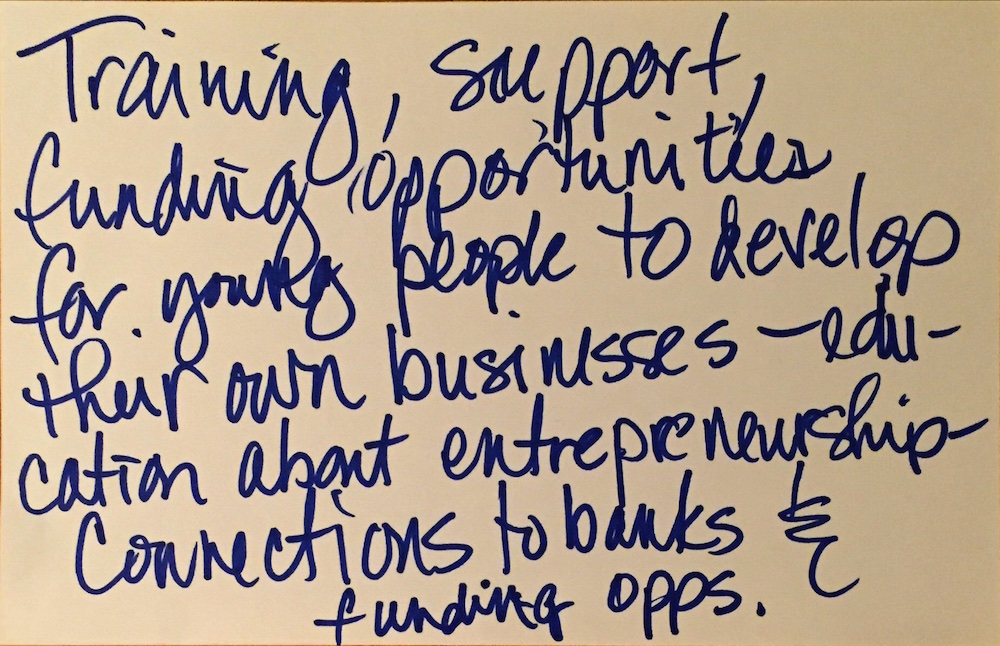 Training, support,
funding opportunities
for young people to develop
their own businesses - edu-
cation about entrepreneurship-
Connections to banks &
funding opps.